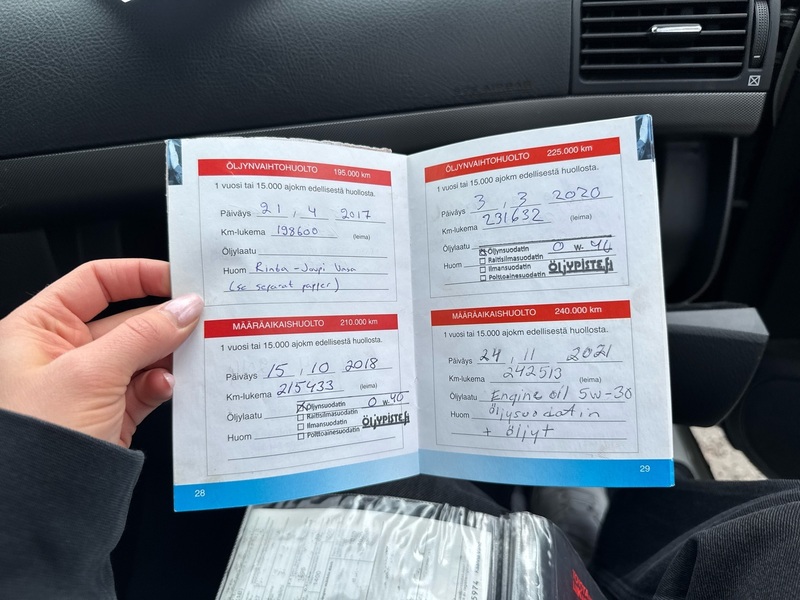 ÖLJYNVAIHTOHUOLTO 195.000 km
1 vuosi tai 15.000 ajokm edellisestä huollosta.
Päiväys 21 . 4 2017
Km-lukema 198600 (leima)
Öljylaatu
Huom Rinta-Joupi Vasa
(se separat papper)
MÄÄRÄAIKAISHUOLTO 210.000 km
1 vuosi tai 15.000 ajokm edellisestä huollosta.
Päiväys 15 . 10 2018
Km-lukema 215433 (leima)
Öljylaatu Öljynsuodatin 0 w 40
Raitisilmasuodatin
Ilmansuodatin ÖLJYPISTE.fi
Huom Polttoainesuodatin
28
ÖLJYNVAIHTOHUOLTO 225.000 km
1 vuosi tai 15.000 ajokm edellisestä huollosta.
Päiväys 3 . 3 2020
Km-lukema 231632 (leima)
Öljylaatu Öljynsuodatin 0 w-40
Raitisilmasuodatin
Huom Ilmansuodatin ÖLJYPISTE.fi
Polttoainesuodatin
MÄÄRÄAIKAISHUOLTO 240.000 km
1 vuosi tai 15.000 ajokm edellisestä huollosta.
Päiväys 24 . 11 2021
Km-lukema 242513 (leima)
Öljylaatu Engine oil 5w-30
Huom öljysuodatin
+ öljyt
29